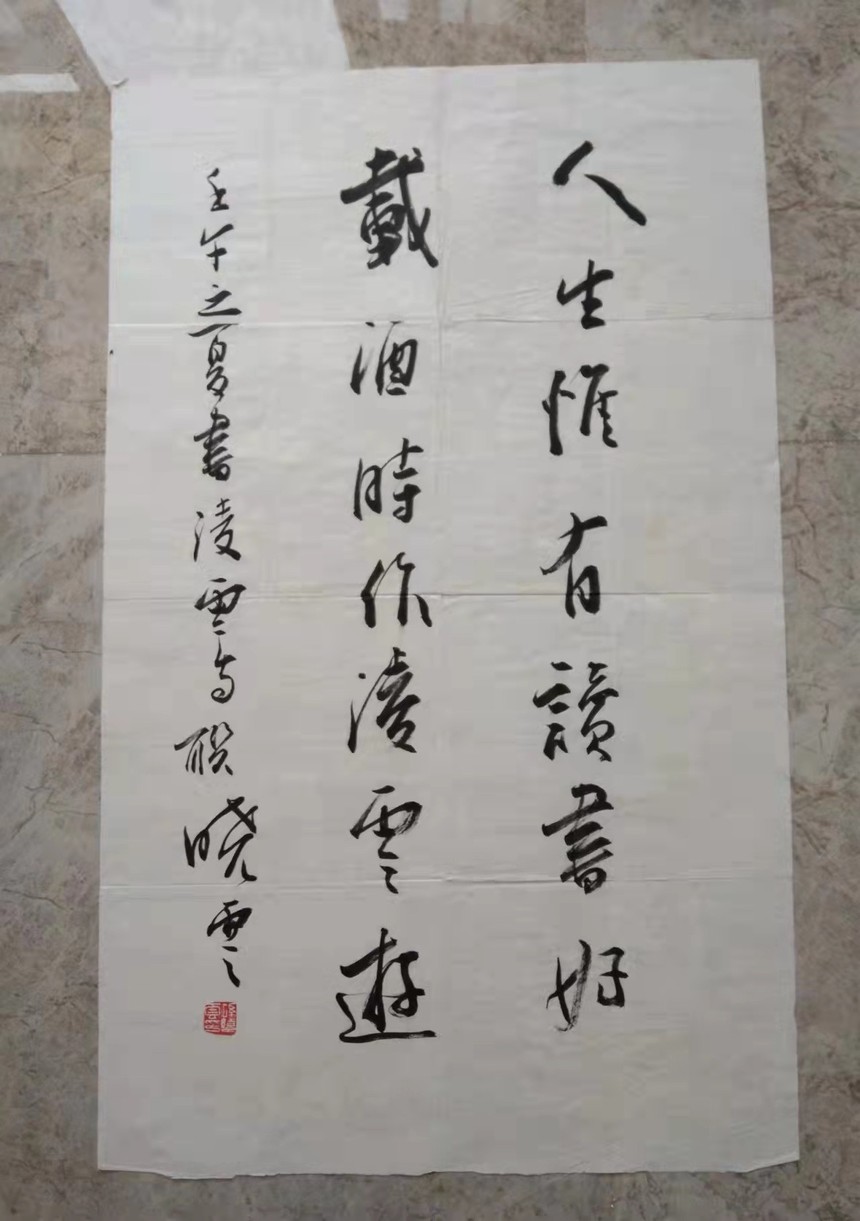 人生惟有讀書好
載酒時作淩雲遊
壬午之夏書淩雲寺联曉雲